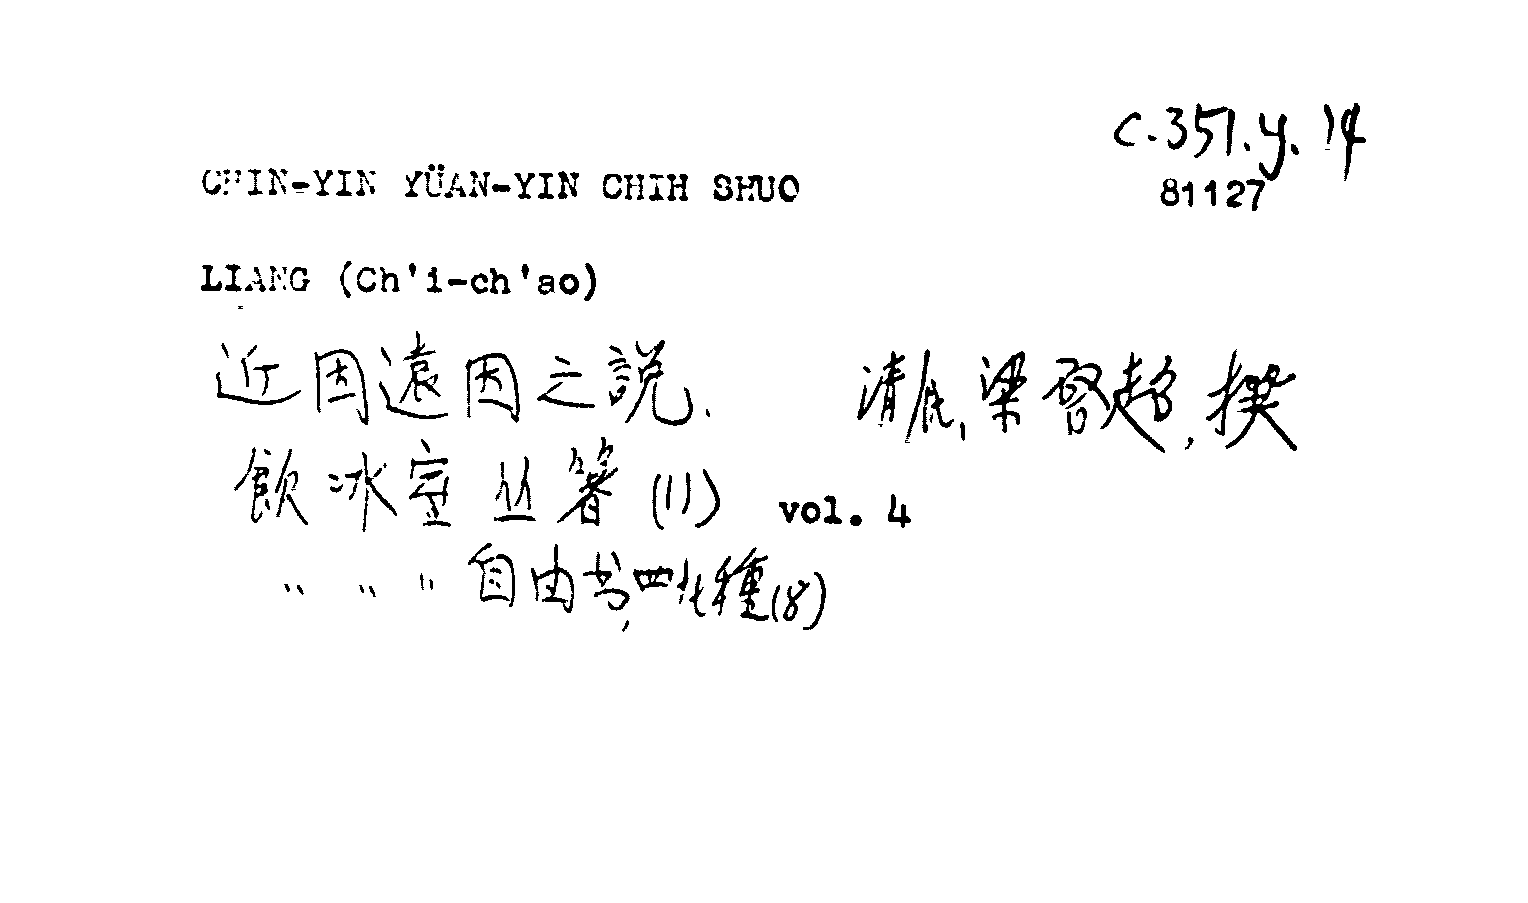 c.351.y.14
81127
CHIN-YIN YÜAN-YIN CHIH SHUO
LIANG (Ch'i-ch'ao)
近因遠因之説. 清末,梁啓超,撰
飲冰室丛箸(11) vol. 4
〃 〃 〃 自由书,四九種(8)